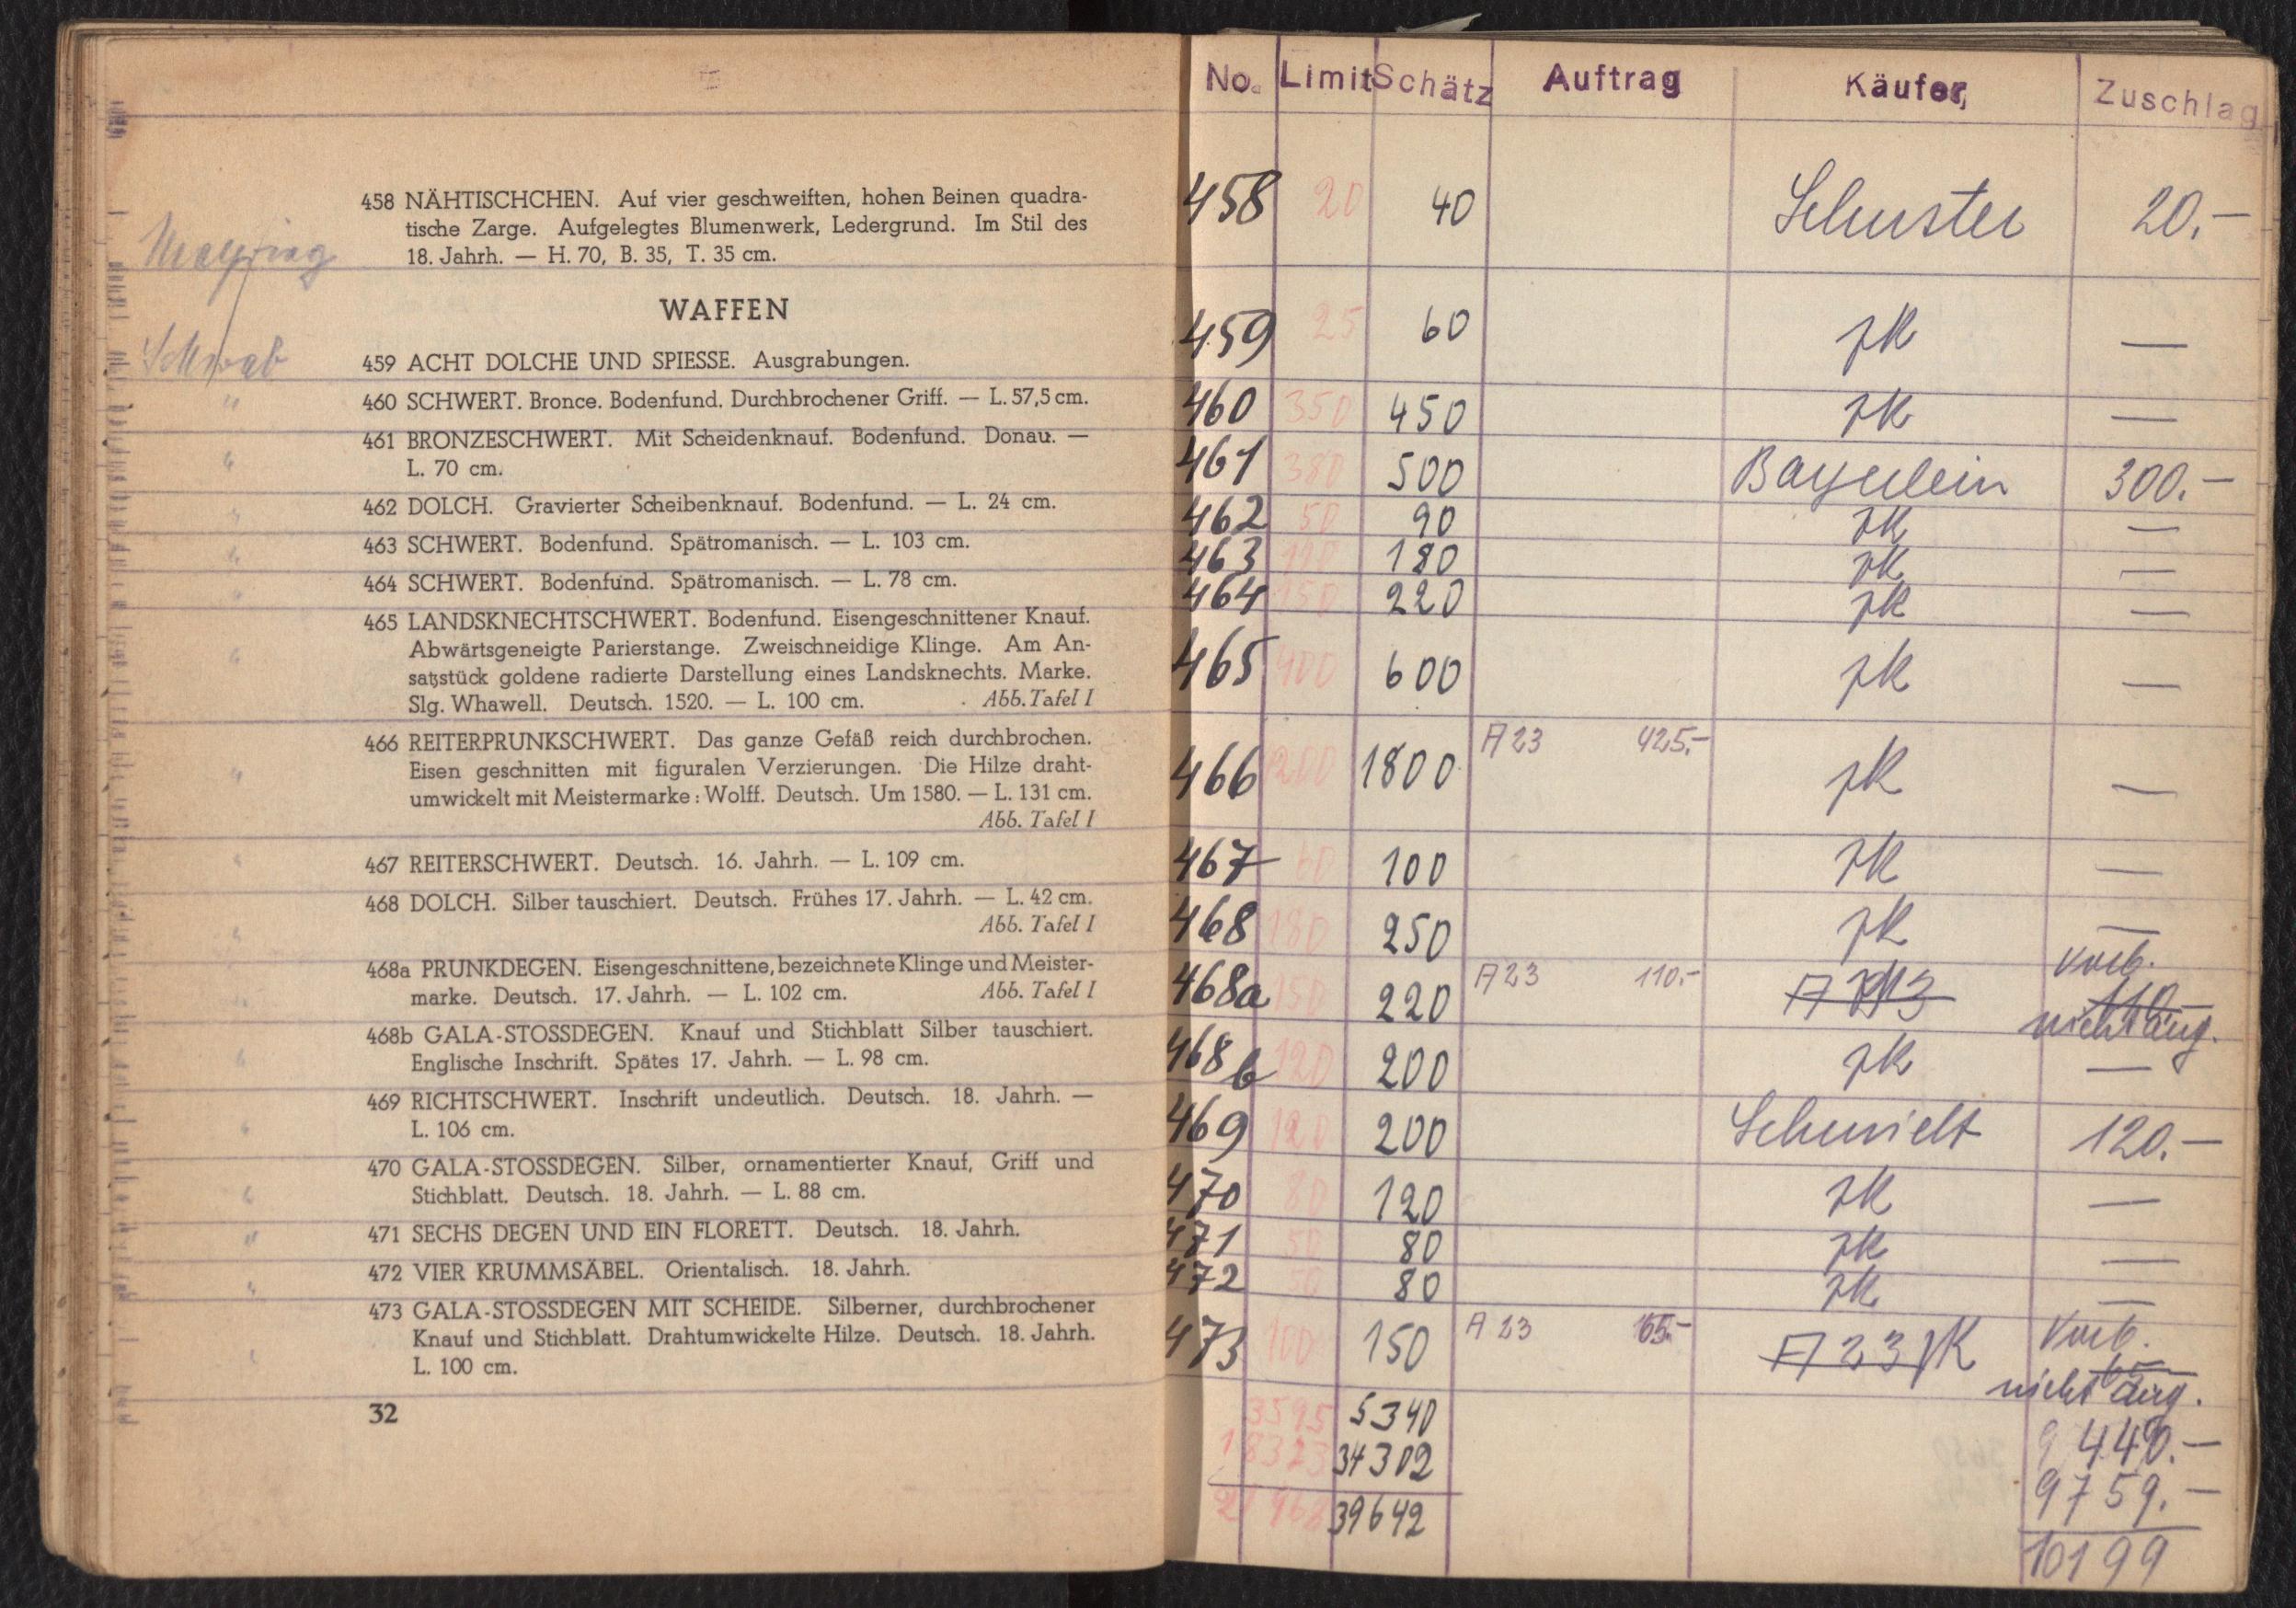 458 NÄHTISCHCHEN. Auf vier geschweiften, hohen Beinen quadra-
tische Zarge. Aufgelegtes Blumenwerk, Ledergrund. Im Stil des
18. Jahrh. — H. 70, B. 35, T. 35 cm.
WAFFEN
Schwab
459 ACHT DOLCHE UND SPIESSE. Ausgrabungen.
" 460 SCHWERT. Bronce. Bodenfund. Durchbrochener Griff. — L. 57,5 cm.
461 BRONZESCHWERT. Mit Scheidenknauf. Bodenfund. Donau. —
L. 70 cm.
462 DOLCH. Gravierter Scheibenknauf. Bodenfund. — L. 24 cm.
463 SCHWERT. Bodenfund. Spätromanisch. — L. 103 cm.
464 SCHWERT. Bodenfund. Spätromanisch. — L. 78 cm.
465 LANDSKNECHTSCHWERT. Bodenfund. Eisengeschnittener Knauf.
Abwärtsgeneigte Parierstange. Zweischneidige Klinge. Am An-
satzstück goldene radierte Darstellung eines Landsknechts. Marke.
Slg. Whawell. Deutsch. 1520. — L. 100 cm. Abb. Tafel I
466 REITERPRUNKSCHWERT. Das ganze Gefäß reich durchbrochen.
Eisen geschnitten mit figuralen Verzierungen. Die Hilze draht-
umwickelt mit Meistermarke: Wolff. Deutsch. Um 1580. — L. 131 cm.
Abb. Tafel I
467 REITERSCHWERT. Deutsch. 16. Jahrh. — L. 109 cm.
468 DOLCH. Silber tauschiert. Deutsch. Frühes 17. Jahrh. — L. 42 cm.
Abb. Tafel I
468a PRUNKDEGEN. Eisengeschnittene, bezeichnete Klinge und Meister-
marke. Deutsch. 17. Jahrh. — L. 102 cm. Abb. Tafel I
468b GALA-STOSSDEGEN. Knauf und Stichblatt Silber tauschiert.
Englische Inschrift. Spätes 17. Jahrh. — L. 98 cm.
469 RICHTSCHWERT. Inschrift undeutlich. Deutsch. 18. Jahrh. —
L. 106 cm.
470 GALA-STOSSDEGEN. Silber, ornamentierter Knauf, Griff und
Stichblatt. Deutsch. 18. Jahrh. — L. 88 cm.
471 SECHS DEGEN UND EIN FLORETT. Deutsch. 18. Jahrh.
472 VIER KRUMMSÄBEL. Orientalisch. 18. Jahrh.
473 GALA-STOSSDEGEN MIT SCHEIDE. Silberner, durchbrochener
Knauf und Stichblatt. Drahtumwickelte Hilze. Deutsch. 18. Jahrh.
L. 100 cm.
32
No. Limit Schätz Auftrag Käufer, Zuschlag
458 20 40 Schuster 20.—
459 25 60 zK —
460 350 450 zK —
461 380 500 Bayerlein 300.—
462 50 90 zK —
463 120 180 zK —
464 150 220 zK —
465 400 600 zK —
466 1800 A 23 425.- zK —
467 60 100 zK —
468 180 250 zK —
468a 150 220 A 23 110.- Vorb.
nicht ang.
468b 120 200 zK —
469 120 200 Schmidt 120.—
470 80 120 zK —
471 50 80 zK —
472 50 80 zK —
473 100 150 A 23 65.- A 23 zK Vorb.
nicht ang.
3595 5340 440.—
18323 34302 9759.—
39642 10199